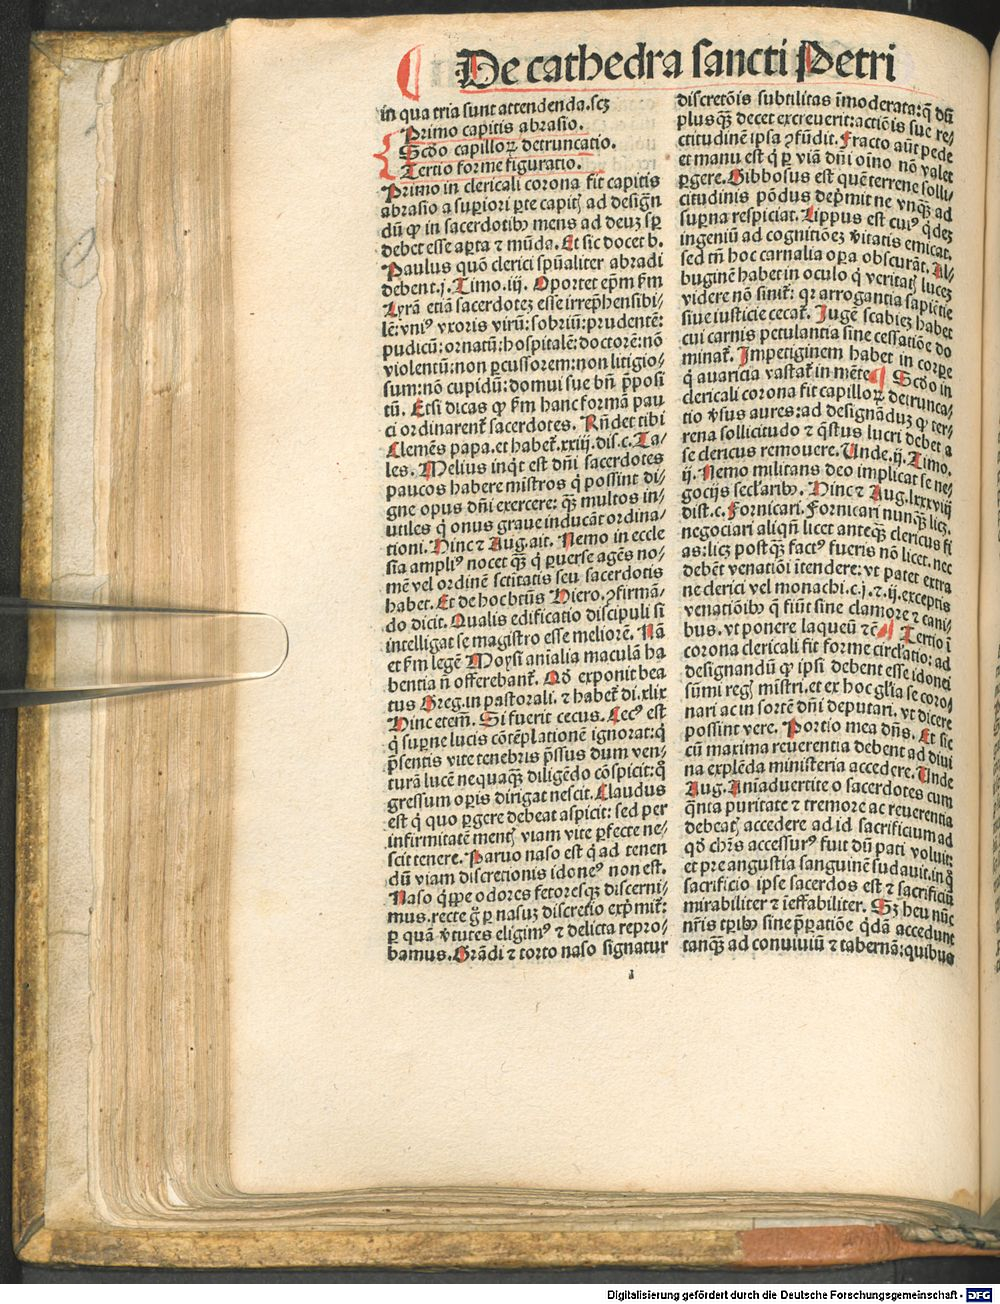 De cathedra sancti Petri
in qua tria sunt attendenda.scꝫ
Primo capitis abrasio.
Scdo capilloꝝ detruncatio.
Tertio forme figuratio.
Primo in clericali corona fit capitis
abrasio a supiori pte capitꝭ ad design̄
dū ꝙ in sacerdotibꝰ mens ad deuꝫ sp
debet esse apta ⁊ mūda. Et sic docet b.
Paulus quō clerici spūaliter abradi
debent.j. Timo.iij. Oportet epm̄ km̄
Lyrā etiā sacerdoteꝫ esse irrep̄hensibi-
lē:vniꝰ vxoris virū:sobriū:prudentē:
pudicū:ornatū:hospitalē:doctorē:nō
violentū:non ꝑcussorem:non litigio-
sum:nō cupidū:domui sue bn̄ p̄posi
tū. Etsi dicas ꝙ km̄ hanc formā pau
ci ordinarent̄ sacerdotes. Rn̄det tibi
Clemēs papa.et habet̄.xxiij.dis.c.Ta-
les. Melius inqt est dn̄i sacerdotes
paucos habere mīstros q possint di-
gne opus dn̄i exercere: qꝫ multos in-
utiles q onus graue inducāt ordina-
tioni. Hinc ⁊ Aug.ait. Nemo in eccle
sia ampliꝰ nocet qꝫ q ꝑuerse agēs no-
mē vel ordinē sctitatis seu sacerdotis
habet. Et de hoc btūs Hiero. ꝯfirmā-
do dicit. Qualis edificatio discipuli si
intelligat se magistro esse meliorē. Nā
et km̄ legē Moysi anīalia maculā ha
bentia n̄ offerebant̄. Qd exponit bea
tus Greg.in pastorali. ⁊ habet̄ di.xlix
Hinc etem̄. Si fuerit cecus. Cecꝰ est
q supne lucis cōtēplationē ignorat:q
p̄sentis vite tenebris p̄ssus dum ven-
turā lucē nequaqꝫ diligēdo cōspicit:q
gressum opis dirigat nescit. Claudus
est q quo ꝑgere debeat aspicit: sed per
infirmitatē mentꝭ viam vite ꝑfecte ne-
scit tenere. Paruo naso est q ad tenen
dū viam discretionis idoneꝰ non est.
Naso qppe odores fetoresqꝫ discerni-
mus.recte g ꝑ nasuꝫ discretio exp̄mit̄:
ꝑ quā v̄tutes eligimꝰ ⁊ delicta repro-
bamus. Grādi ⁊ torto naso signatur
discretōis subtilitas īmoderata:q dū
plusqꝫ decet excreuerit:actiōis sue re-
ctitudinē ipsa ꝯfūdit. Fracto aūt pede
et manu est q ꝑ viā dn̄i oīno nō valet
ꝑgere. Gibbosus est quē terrene solli-
citudinis pōdus dep̄mit ne vnqꝫ ad
supna respiciat. Lippus est cuiꝰ qdeꝫ
ingeniū ad cognitiōeꝫ v̄itatis emicat,
sed tn̄ hoc carnalia opa obscurāt. Al-
buginē habet in oculo q veritatꝭ luceꝫ
videre nō sinit̄: qr arrogantia sapiētie
siue iusticie cecat̄. Jugē scabieꝫ habet
cui carnis petulantia sine cessatiōe do
minat̄. Impetiginem habet in corpe
q auaricia vastat̄ in mēte. Scdo in
clericali corona fit capilloꝝ detrunca-
tio v̄sus aures:ad designāduꝫ ꝙ ter-
rena sollicitudo ⁊ qstus lucri debet a
se clericus remouere. Unde.ij.Timo.
ij. Nemo militans deo implicat se ne-
gocijs seclaribꝰ. Hinc ⁊ Aug.lxxxviij
dist.c. Fornicari. Fornicari nunqꝫ licꝫ.
negociari aliqn̄ licet anteqꝫ clericus fi
as:licꝫ postqꝫ factꝰ fueris nō licet. nec
debēt venatiōi ītendere: vt patet extra
ne clerici vel monachi.c.j.⁊.ij.exceptis
venatiōibꝰ q fiūt sine clamore ⁊ cani-
bus. vt ponere laqueū ⁊c̄. Tertio ī
corona clericali fit forme circlatio: ad
designandū ꝙ ipsi debent esse idonei
sūmi regꝭ mīstri.et ex hoc glīa se coro-
nari ac in sortē dn̄i deputari. vt dicere
possint vere. Portio mea dn̄s. Et sic
cū maxima reuerentia debent ad diui
na explēda ministeria accedere. Unde
Aug. Anīaduertite o sacerdotes cum
qnta puritate ⁊ tremore ac reuerentia
debeatꝭ accedere ad id sacrificium ad
qd chrs̄ accessurꝰ fuit dū pati voluit:
et pre angustia sanguinē sudauit.in q
sacrificio ipse sacerdos est ⁊ sacrificiū
mirabiliter ⁊ īeffabiliter. Sꝫ heu nūc
nr̄is tꝑibꝰ sine p̄paratiōe qdā accedunt
tanqꝫ ad conuiuiū ⁊ tabernā:quibus
Digitalisierung gefördert durch die Deutsche Forschungsgemeinschaft - DFG